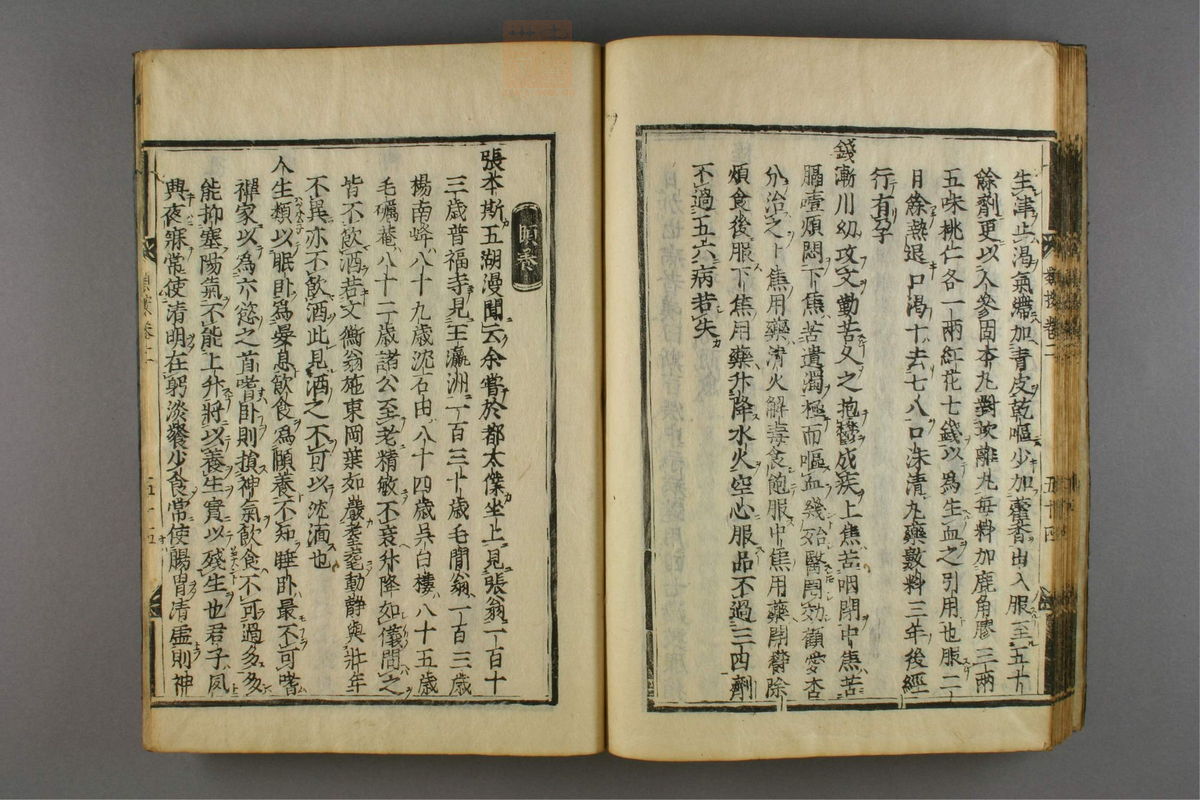 生津止渴氣滯加青皮乾嘔少加藿香出入服至五十
餘劑更以人參固本丸對坎離丸每料加鹿角膠三兩
五味桃仁各一兩紅花七錢以為生血之引用也服二
月餘熱退口渴十去七八口洙清丸藥數料三年後經
行有孕
錢漸川幼攻文勤苦久之抱鬱成疾上焦苦咽閉中焦苦
膈噎煩悶下焦苦遺濁極而嘔血幾殆醫罔効顧愛杏
分治之上焦用藥清火解毒食飽服中焦用藥開鬱除
煩食後服下焦用藥升降水火空心服品不過三四劑
不過五六病若失
頤養
張本斯五湖漫聞云余嘗於都太僕坐上見張翁一百十
三歲普福寺見王瀛洲一百三十歲毛間翁一百三歲
楊南峰八十九歲沈石田八十四歲吳白樓八十五歲
毛礪菴八十二歲諸公至老精敏不衰升降如儀問之
皆不飲酒若文衡翁施東岡葉如巖耄耋動靜與壯年
不異亦不飲酒此見酒之不可以沈湎也
人生類以眠臥為晏息飲食為頤養不知睡臥最不可嗜
禪家以為六慾之首嗜臥則損神氣飲食不可過多多
能抑塞陽氣不能上升將以養生實以殘生也君子夙
興夜寐常使清明在躬淡餐少食常使腸胃清虛則神